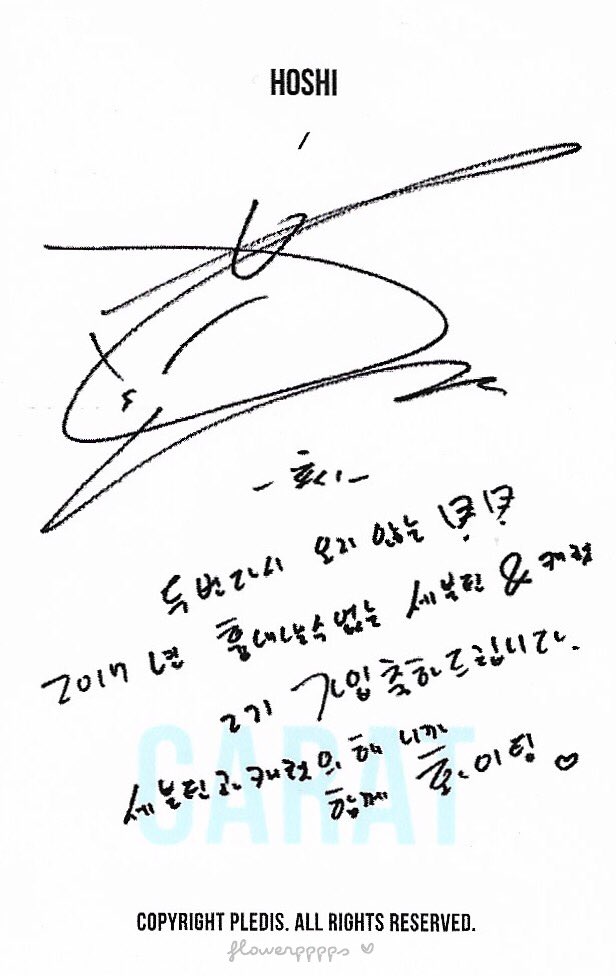 HOSHI
-호시-
두번다시 오지 않는
2017년 흉내낼수없는 세븐틴 & 캐럿
2기 가입 축하드립니다.
세븐틴과 캐럿의 해 니까
함께 ♡
CARAT
COPYRIGHT PLEDIS. ALL RIGHTS RESERVED.
flowerpppps ♡